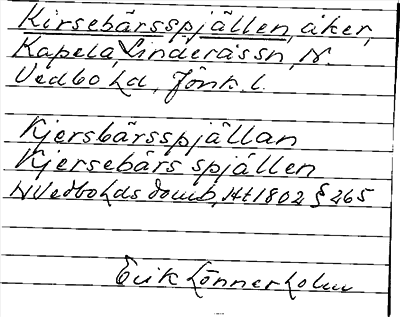 Kirsebärsspjällen, åker,
Kapela, Linderås sn, N.
Vedbo hd, Jönk. l.
Kjersbärsspjällan
Kjersebärs spjällen
N Vedbo hds domb, Ht 1802 § 265
Erik Lönnerholm